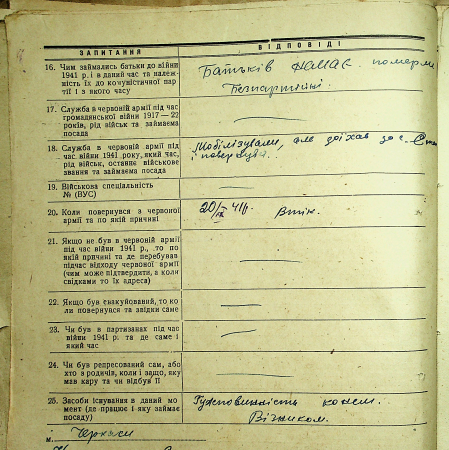 ЗАПИТАННЯ
ВІДПОВІДІ
16. Чим займались батьки до війни
1941 р. і в даний час та належ-
ність їх до комуністичної пар
тії і з якого часу
Батьків немає померли
Безпартійні.
17. Служба в червоній армії під час
громадянської війни 1917—22
років, рід військ та займаєма
посада
18. Служба в червоній армії під-
час війни 1941 року, який час,
рід військ, останнє військове
звання та займаєма посада
Мобілізували, але доїхав до с.
і повернувся.
19. Військова спеціальність
№ (ВУС)
20. Коли повернувся з червоної
армії та по якій причині
20/IX 41р. Втік.
21. Якщо не був в червоній армії
під час війни 1941 р., то по
якій причині та де перебував
підчас відходу червоної армії
(чим може підтвердити, а коли
свідками то їх адреса)
22. Якщо був евакуйований, то ко
ли повернувся та звідки саме
23. Чи був в партизанах під час
війни 1941 р. та де саме і
який час
24. Чи був репресований сам, або
хто з родичів, коли і защо, яку
мав кару та чи відбув її
25. Засоби існування в даний мо
мент (де працює і яку займає
посаду)
конем.
Візником.
м. Черкаси